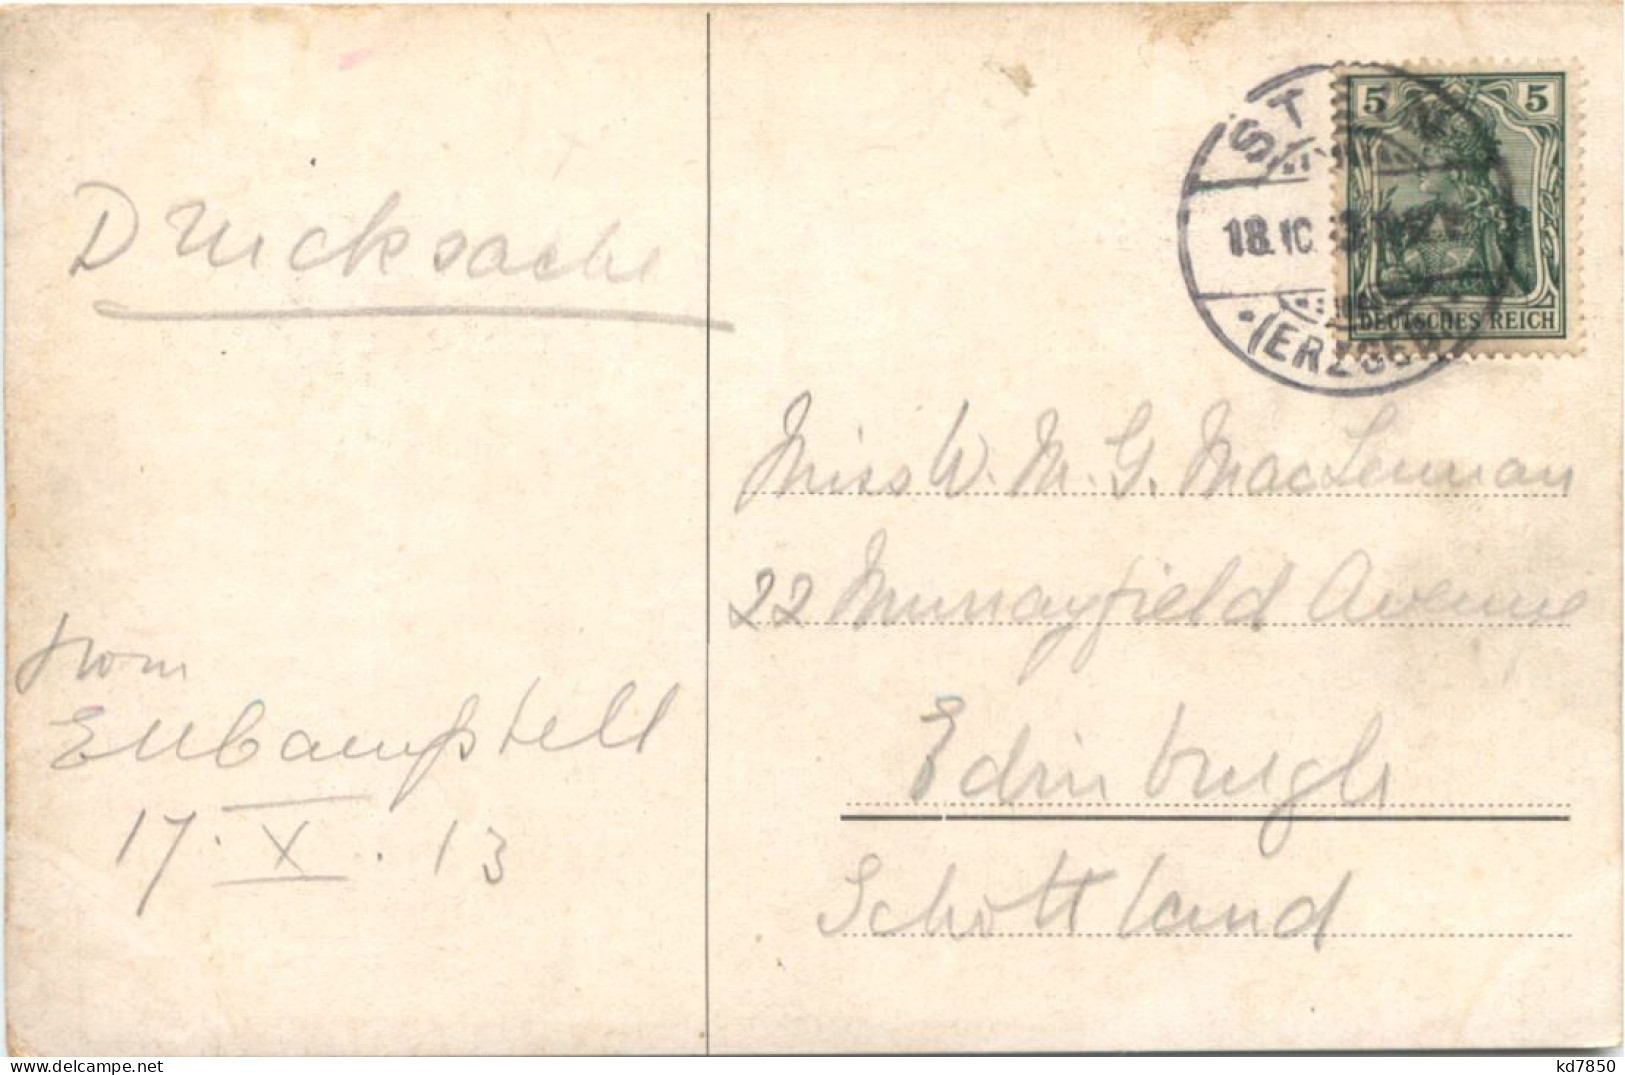 Drucksache
from
17. X. 13
STEIN
18.10.13.
(ERZGEB.)
5 5
DEUTSCHES REICH
Miss W. M. G. MacLennan
22 Murrayfield Avenue
Edinburgh
Schottland
kd7850